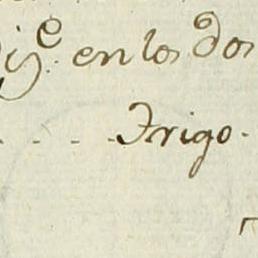 en los dos
Trigo.